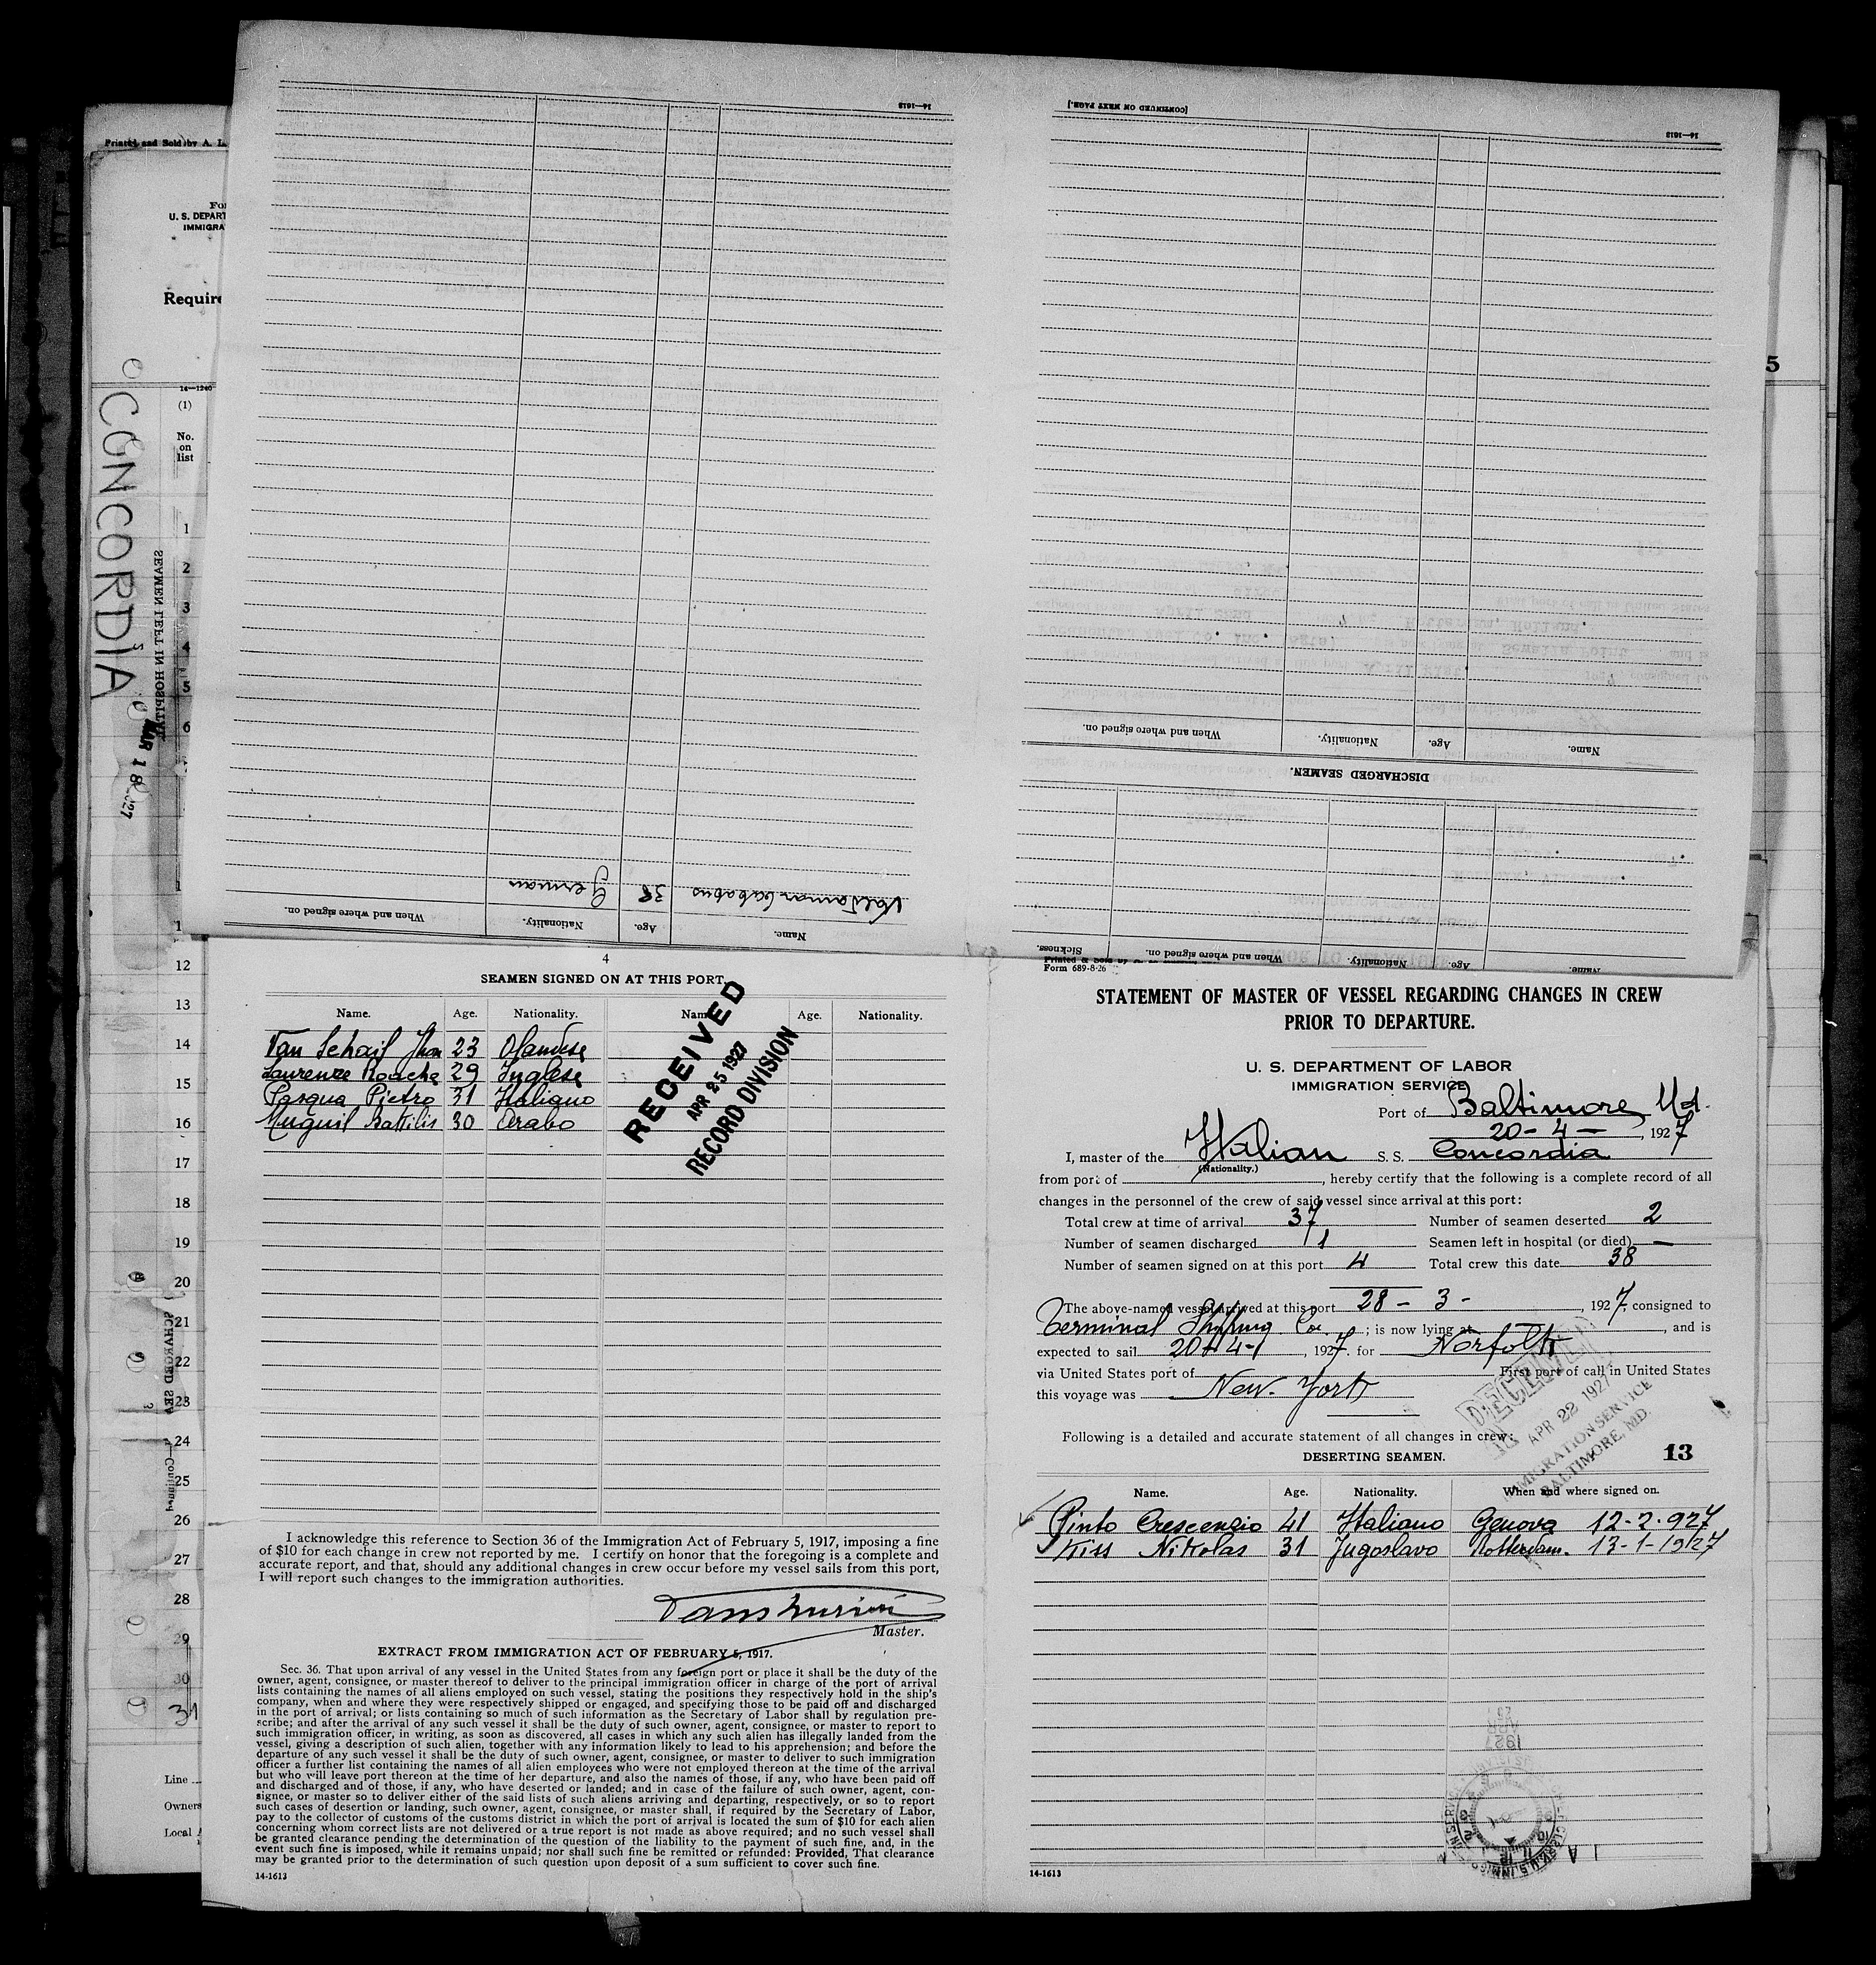 Printed and Sold by A. L.
U. S. DEPART
IMMIGRA
Require
14—1240
(1)
No.
on
list
CONCORDIA
MAR 18 1927
SEAMEN LEFT IN HOSPITAL
1
2
3
4
5
6
12
13
14
15
16
17
18
19
20
21
22
23
24
25
26
27
28
29
30
31
Line
Owners
Local A
5
14—1613
German
38
Name.
Age.
Nationality.
When and where signed on.
[CONTINUED ON NEXT PAGE.]
14—1613
Name.
Age.
Nationality.
When and where signed on.
DISCHARGED SEAMEN.
Name.
Age.
Nationality.
When and where signed on.
Sickness.
4
SEAMEN SIGNED ON AT THIS PORT.
Name. Age. Nationality. Name. Age. Nationality.
Van Schaif Jhon 23 Olandese
Laurenze Roache 29 Inglese
Pasqua Pietro 31 Italiano
30 Arabo
RECEIVED
APR 25 1927
RECORD DIVISION
I acknowledge this reference to Section 36 of the Immigration Act of February 5, 1917, imposing a fine
of $10 for each change in crew not reported by me. I certify on honor that the foregoing is a complete and
accurate report, and that, should any additional changes in crew occur before my vessel sails from this port,
I will report such changes to the immigration authorities.
Master.
EXTRACT FROM IMMIGRATION ACT OF FEBRUARY 5, 1917.
Sec. 36. That upon arrival of any vessel in the United States from any foreign port or place it shall be the duty of the
owner, agent, consignee, or master thereof to deliver to the principal immigration officer in charge of the port of arrival
lists containing the names of all aliens employed on such vessel, stating the positions they respectively hold in the ship's
company, when and where they were respectively shipped or engaged, and specifying those to be paid off and discharged
in the port of arrival; or lists containing so much of such information as the Secretary of Labor shall by regulation pre-
scribe; and after the arrival of any such vessel it shall be the duty of such owner, agent, consignee, or master to report to
such immigration officer, in writing, as soon as discovered, all cases in which any such alien has illegally landed from the
vessel, giving a description of such alien, together with any information likely to lead to his apprehension; and before the
departure of any such vessel it shall be the duty of such owner, agent, consignee, or master to deliver to such immigration
officer a further list containing the names of all alien employees who were not employed thereon at the time of the arrival
but who will leave port thereon at the time of her departure, and also the names of those, if any, who have been paid off
and discharged and of those, if any, who have deserted or landed; and in case of the failure of such owner, agent, con-
signee, or master so to deliver either of the said lists of such aliens arriving and departing, respectively, or so to report
such cases of desertion or landing, such owner, agent, consignee, or master shall, if required by the Secretary of Labor,
pay to the collector of customs of the customs district in which the port of arrival is located the sum of $10 for each alien
concerning whom correct lists are not delivered or a true report is not made as above required; and no such vessel shall
be granted clearance pending the determination of the question of the liability to the payment of such fine, and, in the
event such fine is imposed, while it remains unpaid; nor shall such fine be remitted or refunded: Provided, That clearance
may be granted prior to the determination of such question upon deposit of a sum sufficient to cover such fine.
14-1613
Form 689-8-26
STATEMENT OF MASTER OF VESSEL REGARDING CHANGES IN CREW
PRIOR TO DEPARTURE.
U. S. DEPARTMENT OF LABOR
IMMIGRATION SERVICE
Port of Baltimore Md.
20-4-, 1927
I, master of the Italian S. S. Concordia
(Nationality.)
from port of , hereby certify that the following is a complete record of all
changes in the personnel of the crew of said vessel since arrival at this port:
Total crew at time of arrival 37 Number of seamen deserted 2
Number of seamen discharged 1 Seamen left in hospital (or died) —
Number of seamen signed on at this port 4 Total crew this date 38
The above-named vessel arrived at this port 28-3-, 1927. consigned to
Terminal Shipping Co. ; is now lying at , and is
expected to sail 20-4-, 1927. for Norfolk
via United States port of First port of call in United States
this voyage was New-York
Following is a detailed and accurate statement of all changes in crew:
RECEIVED
APR 22 1927
IMMIGRATION SERVICE
BALTIMORE, MD.
DESERTING SEAMEN. 13
Name. Age. Nationality. When and where signed on.
Pinto Crescenzio 41 Italiano Genova 12-2-927
Kiss Nikolas 31 Jugoslavo Rotterdam. 13-1-1927
14-1613